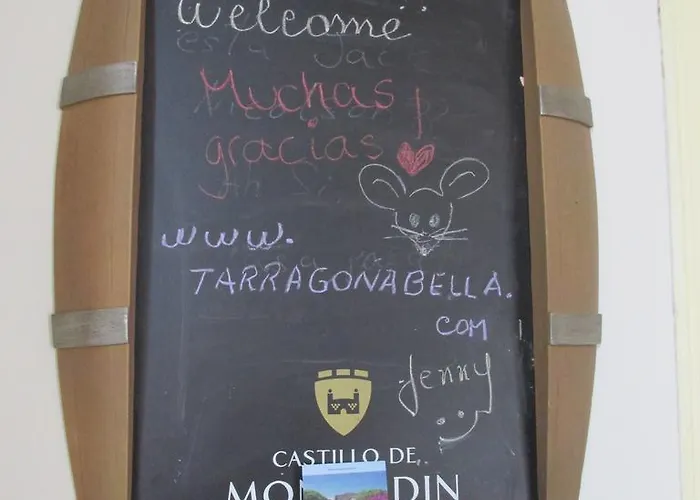 Welcome
Muchas
gracias
www.
TARRAGONABELLA.
com
Jenny
CASTILLO DE